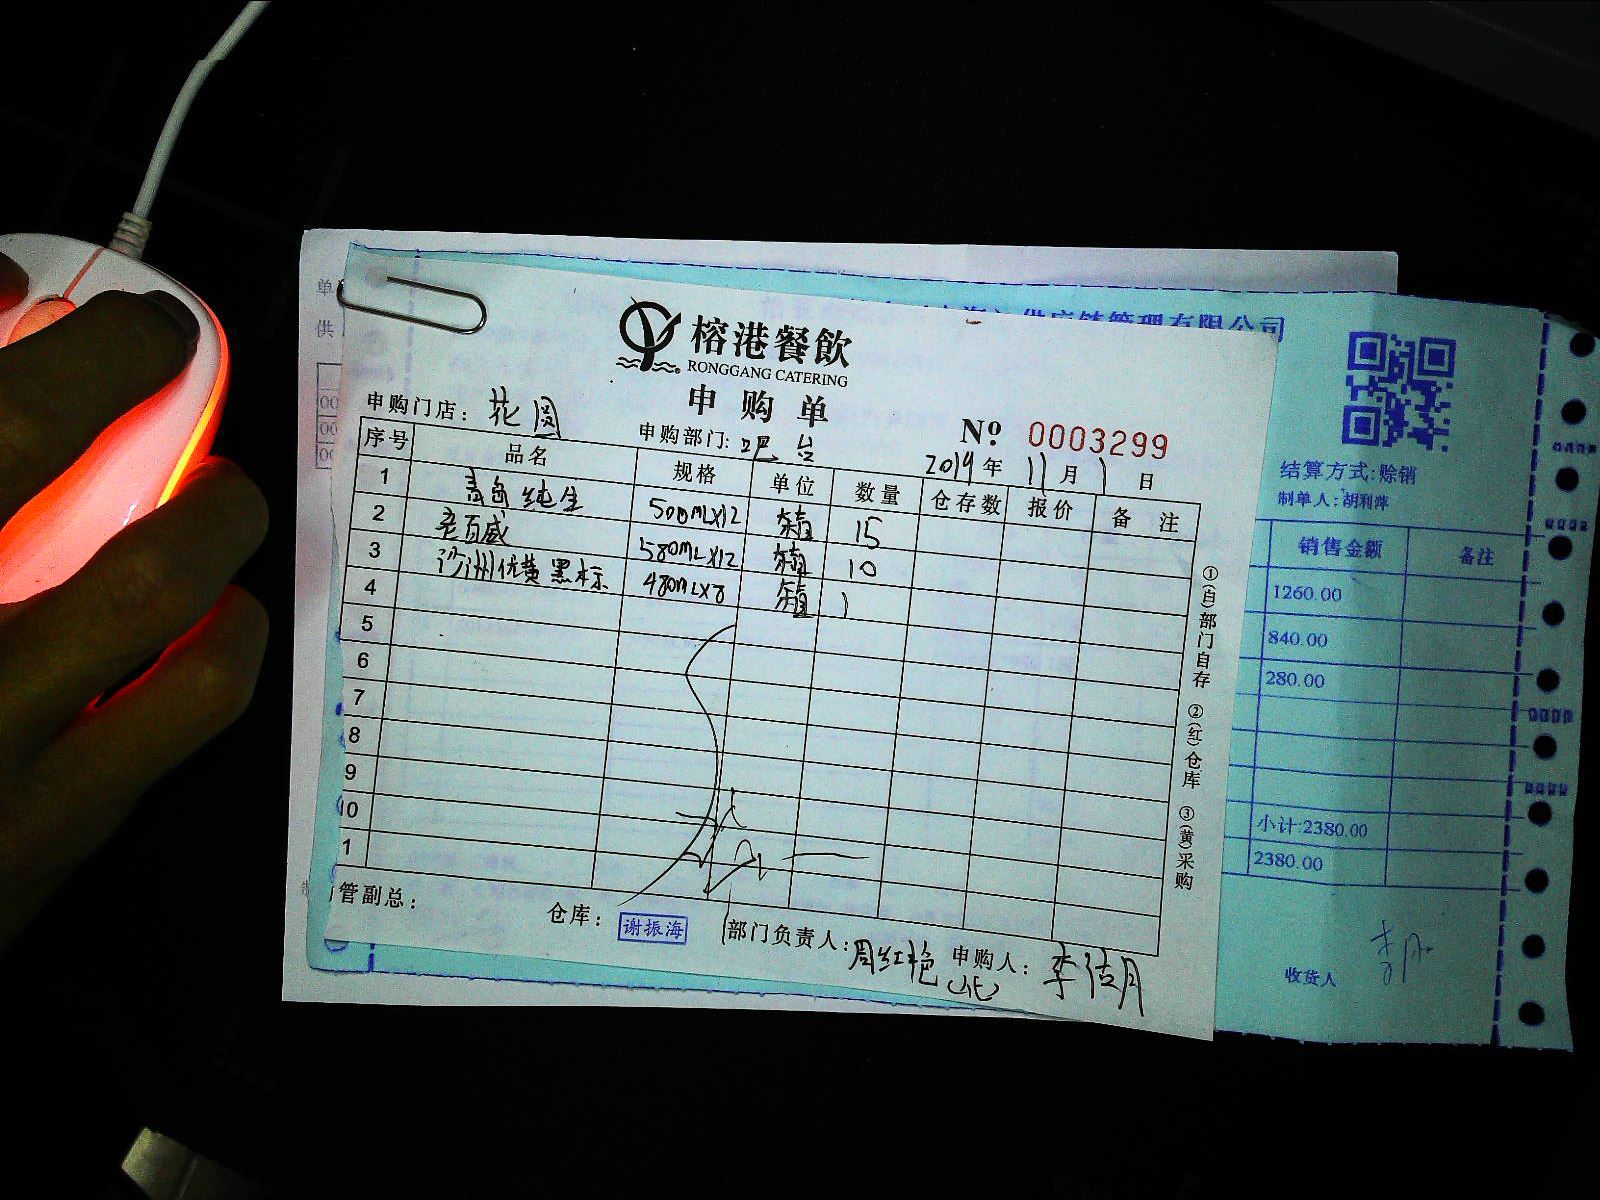 榕港餐飲
RONGGANG CATERING
申购单
申购门店: 花园
申购部门: 吧台
Nº 0003299
2019年 11月 1日
序号 品名 规格 单位 数量 仓存数 报价 备注
1 青岛纯生 500MLX12 箱 15
2 百威 580MLX12 箱 10
3 沙洲优黄黑标 480MLX8 箱 1
4
5
6
7
8
9
10
1
①(白)部门自存 ②(红)仓库 ③(黄)采购
管副总:
仓库: 谢振海
部门负责人: 周红艳
申购人: 李洁月
供应链管理有限公司
结算方式:赊销
制单人:胡利萍
销售金额 备注
1260.00
840.00
280.00
小计:2380.00
2380.00
收货人
单
供
00
00
00